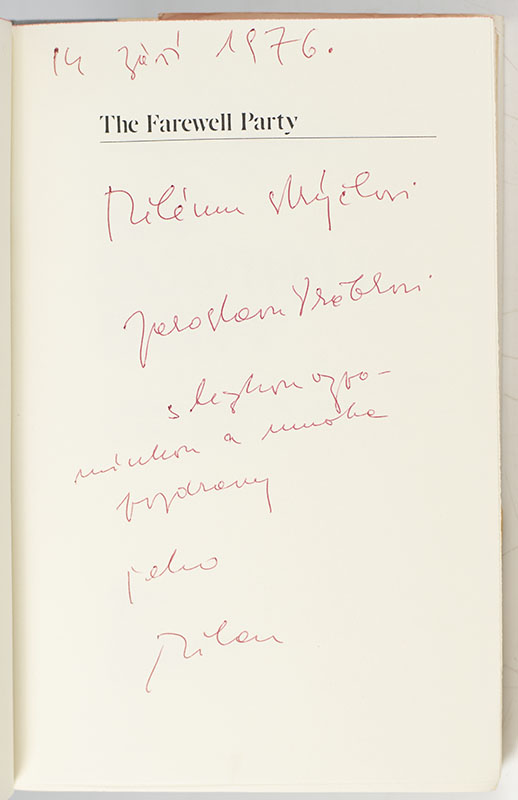 14 září 1976.
The Farewell Party
Milému strýčkovi
Jaroslavu Vráblovi
s hezkou vzpo-
mínkou a mnoha
pozdravy
jeho
Milan